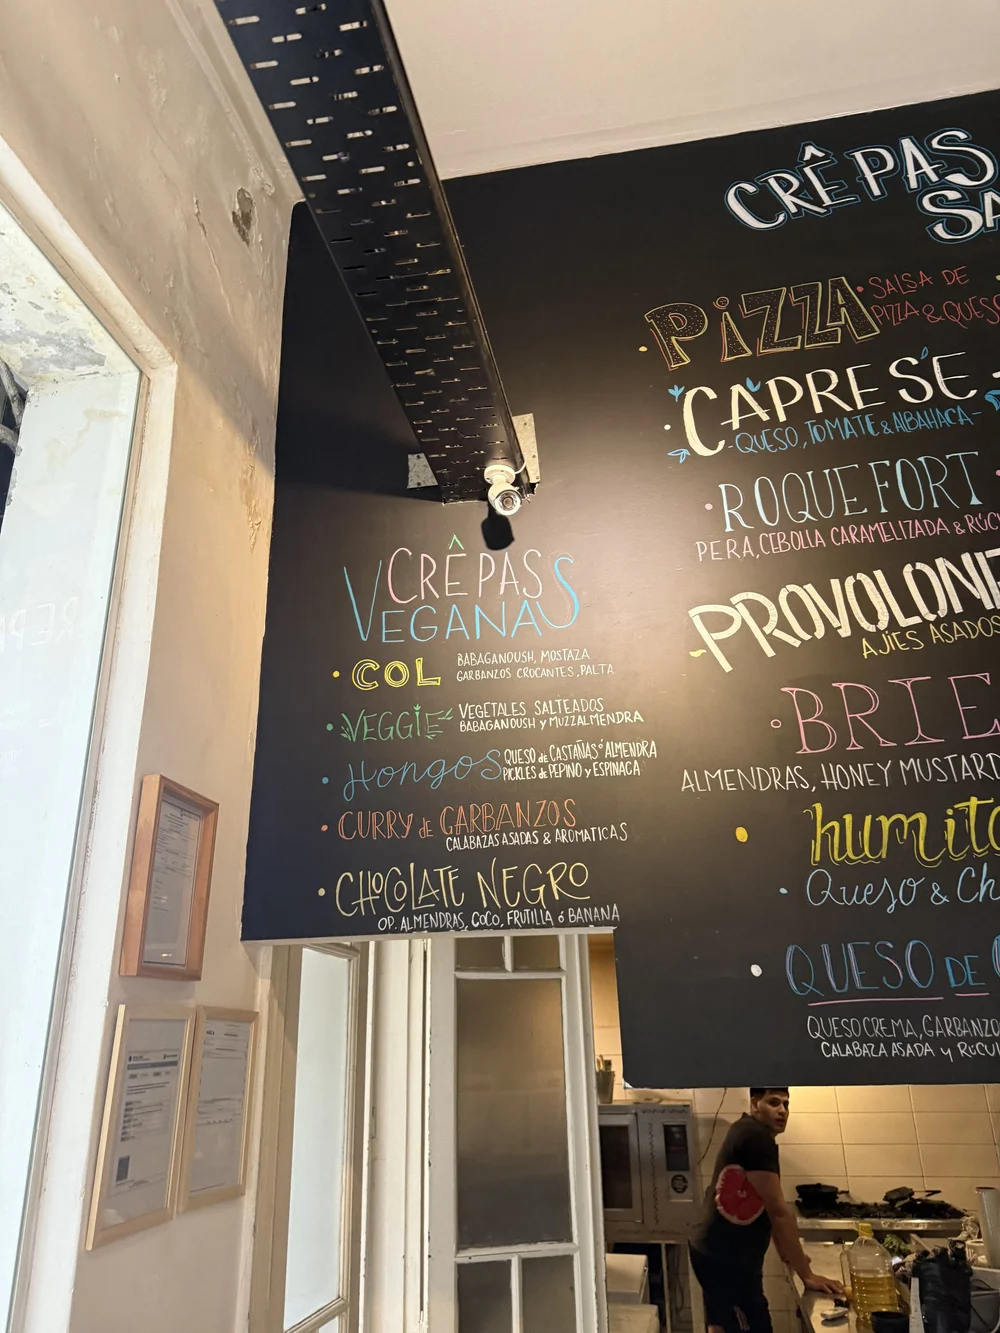 CRÊPAS
VEGANAS
COL
BABAGANOUSH, MOSTAZA
GARBANZOS CROCANTES, PALTA
VEGGIE
VEGETALES SALTEADOS
BABAGANOUSH y MUZZALMENDRA
Hongos
QUESO de CASTAÑAS ó ALMENDRA
PICKLES de PEPINO y ESPINACA
CURRY de GARBANZOS
CALABAZAS ASADAS & AROMATICAS
CHOCOLATE NEGRO
OP. ALMENDRAS, COCO, FRUTILLA ó BANANA
CRÊPAS
SA
PIZZA
SALSA DE
PIZZA & QUESO
CAPRESE
-QUESO, TOMATE & ALBAHACA-
ROQUEFORT
PERA, CEBOLLA CARAMELIZADA & RÚC
PROVOLON
AJÍES ASADOS
BRIE
ALMENDRAS, HONEY MUSTARD
humita
Queso & Ch
QUESO DE
QUESO CREMA, GARBANZO
CALABAZA ASADA y RÚCUL